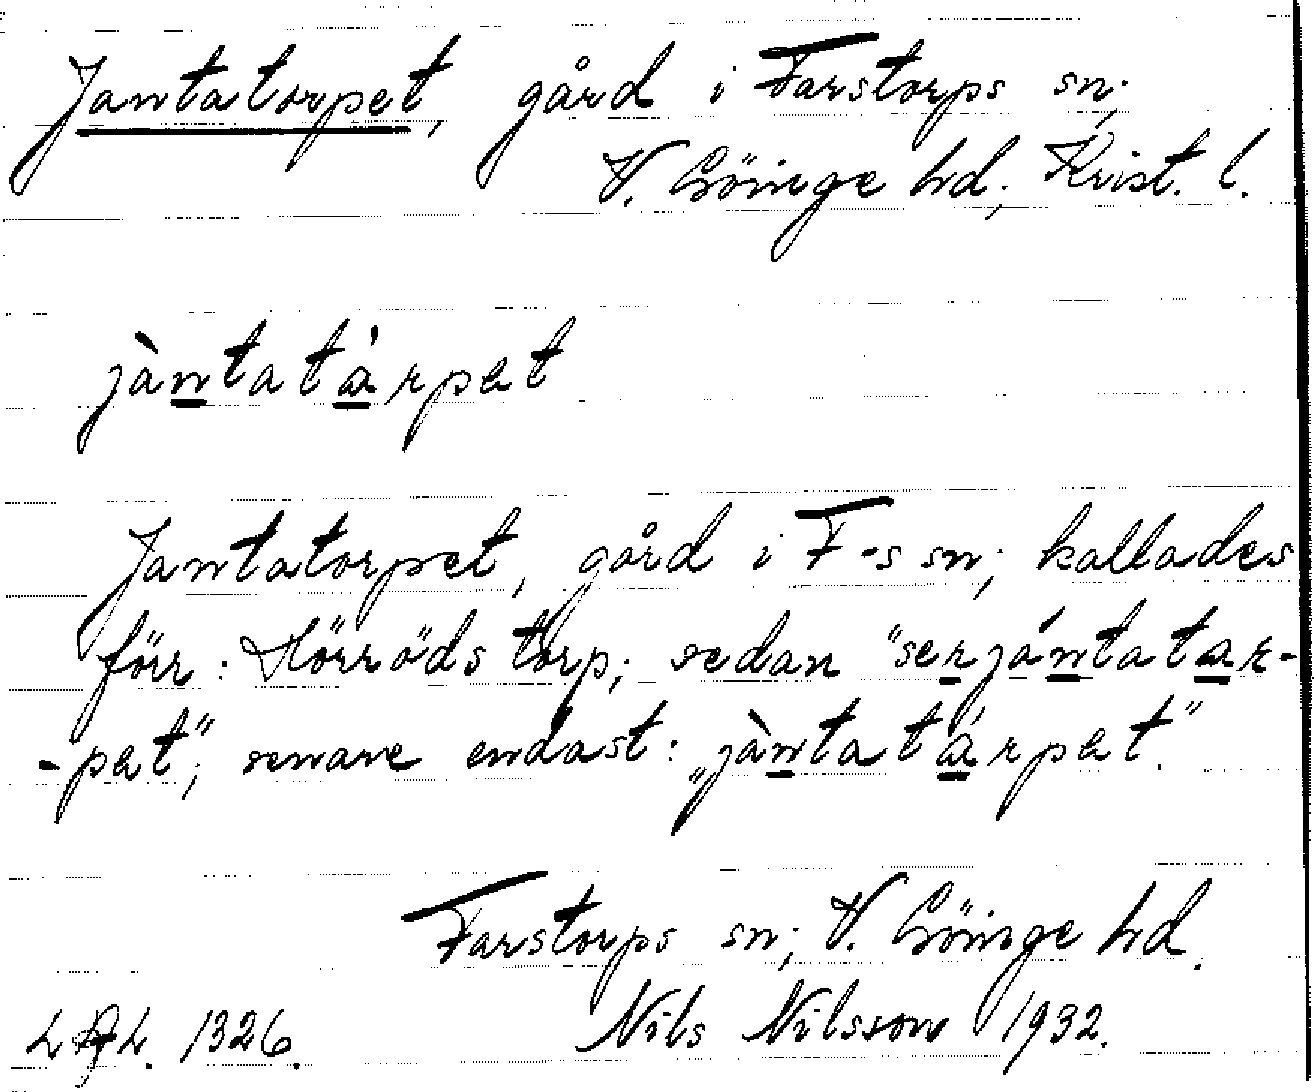 Jantatorpet, gård i Farstorps sn;
V. Göinge hd; Krist. l.
jàntatárpet
Jantatorpet, gård i F-s sn; kallades
förr: Hörröds torp; sedan "serjántatar-
-pet"; senare endast: „jàntatárpet."
Farstorps sn; V. Göinge hd.
1326. Nils Nilsson 1932.